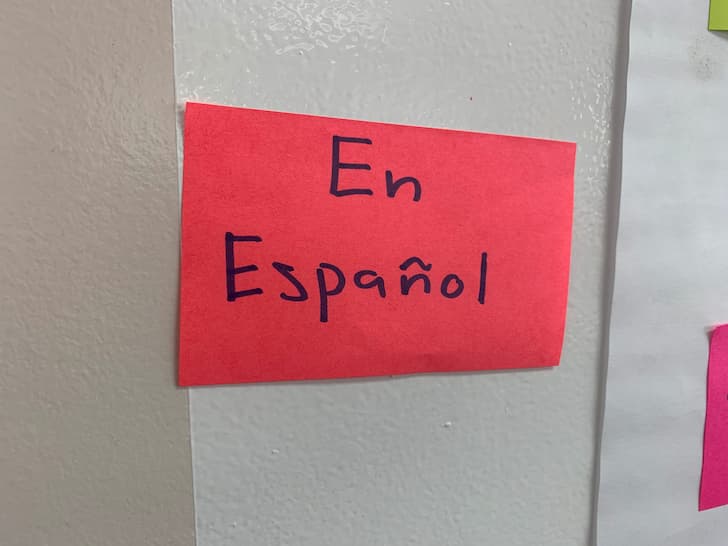 En
Español